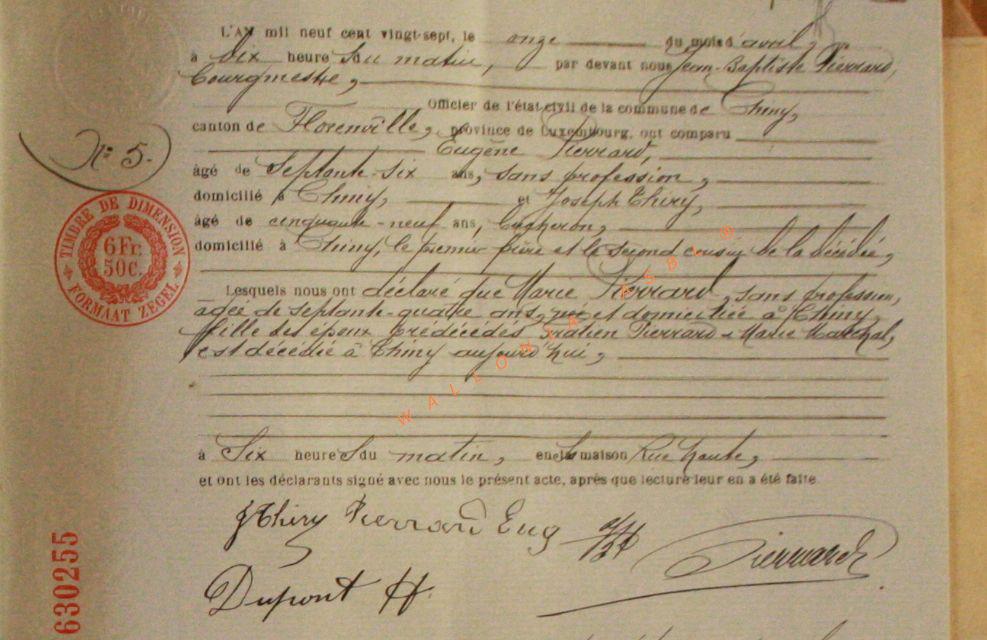 L'AN mil neuf cent vingt-sept, le onze du mois d'avril,
à Dix heures du matin, par devant nous Jean-Baptiste Pierrard,
Bourgmestre,
Officier de l'état civil de la commune de Chiny,
canton de Florenville, province de Luxembourg, ont comparu
N° 5.
Eugène Pierrard,
âgé de Septante-six ans, sans profession,
domicilié à Chiny, et Joseph Thiry,
âgé de cinquante-neuf ans, Bucheron,
domicilié à Chiny, le premier frère et le second cousin de la décédée,
TIMBRE DE DIMENSION
6 Fr.
50 C.
FORMAAT ZEGEL
Lesquels nous ont déclaré que Marie Pierrard, sans profession,
âgée de septante-quatre ans, née et domiciliée à Chiny,
fille des époux prédécédés Pierrard & Marie Maréchal,
est décédée à Chiny aujourd'hui,
WALLONIA ASBL ®
à Six heures du matin, en la maison Rue haute,
et ont les déclarants signé avec nous le présent acte, après que lecture leur en a été faite
J Thiry Pierrard Eug
Pierrard
Dupont H.
630255